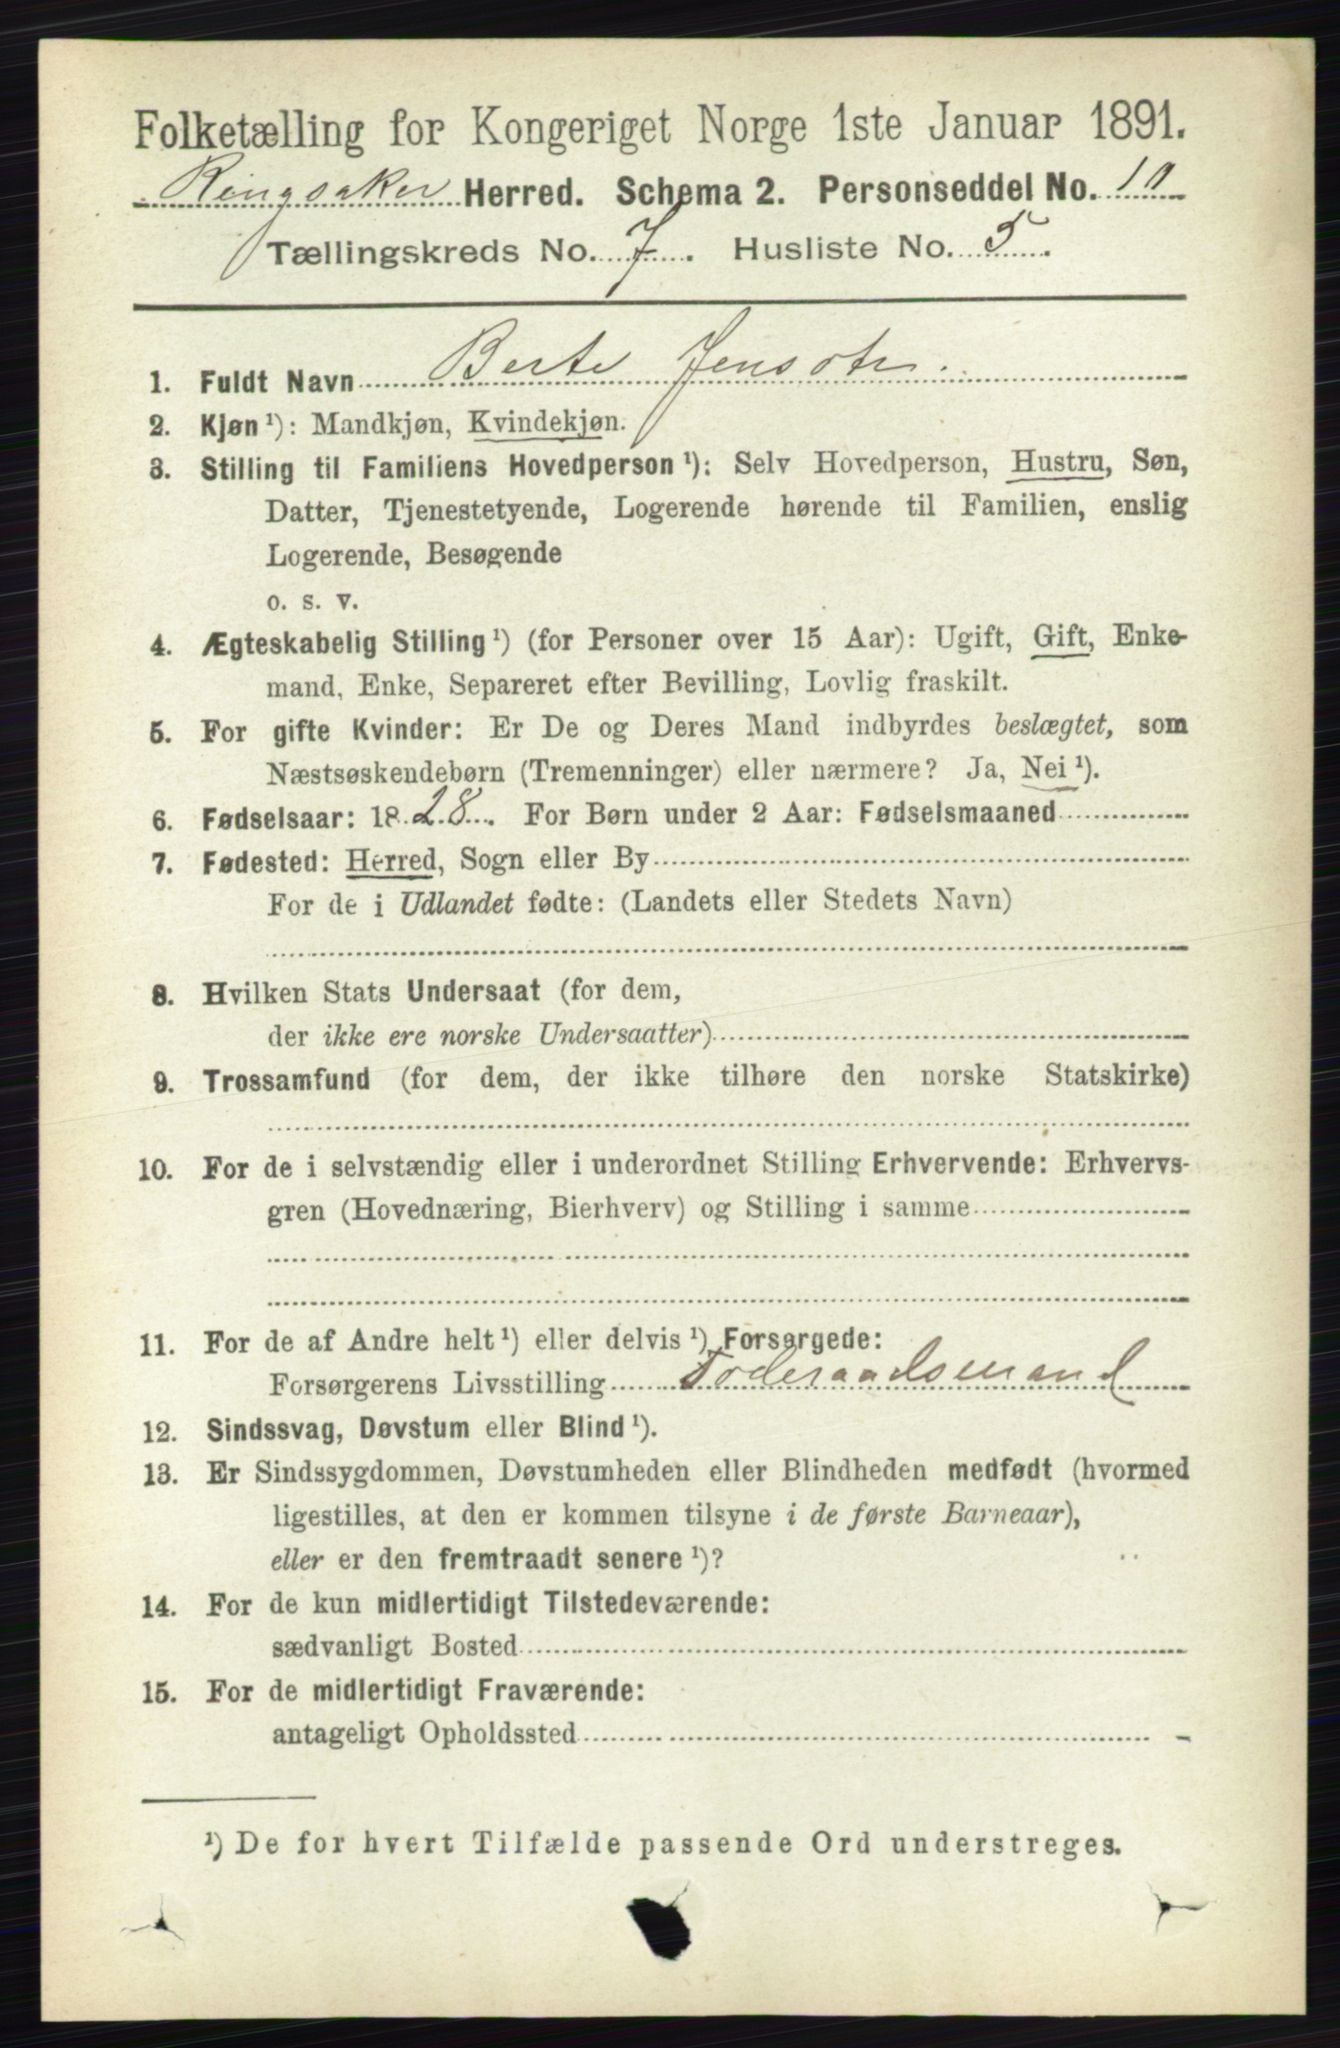 Folketælling for Kongeriget Norge 1ste Januar 1891.
Ringsaker Herred. Schema 2. Personseddel No. 10
Tællingskreds No. 7. Husliste No. 5.
1. Fuldt Navn Berte Jensdtr.
2. Kjøn ¹): Mandkjøn, Kvindekjøn.
3. Stilling til Familiens Hovedperson ¹): Selv Hovedperson, Hustru, Søn,
Datter, Tjenestetyende, Logerende hørende til Familien, enslig
Logerende, Besøgende
o. s. v.
4. Ægteskabelig Stilling ¹) (for Personer over 15 Aar): Ugift, Gift, Enke-
mand, Enke, Separeret efter Bevilling, Lovlig fraskilt.
5. For gifte Kvinder: Er De og Deres Mand indbyrdes beslægtet, som
Næstsøskendebørn (Tremenninger) eller nærmere? Ja, Nei ¹).
6. Fødselsaar: 1828. For Børn under 2 Aar: Fødselsmaaned
7. Fødested: Herred, Sogn eller By
For de i Udlandet fødte: (Landets eller Stedets Navn)
8. Hvilken Stats Undersaat (for dem,
der ikke ere norske Undersaatter)
9. Trossamfund (for dem, der ikke tilhøre den norske Statskirke)
10. For de i selvstændig eller i underordnet Stilling Erhvervende: Erhvervs-
gren (Hovednæring, Bierhverv) og Stilling i samme
11. For de af Andre helt ¹) eller delvis ¹) Forsørgede:
Forsørgerens Livsstilling Foderaadsmand
12. Sindssvag, Døvstum eller Blind ¹).
13. Er Sindssygdommen, Døvstumheden eller Blindheden medfødt (hvormed
ligestilles, at den er kommen tilsyne i de første Barneaar),
eller er den fremtraadt senere ¹)?
14. For de kun midlertidigt Tilstedeværende:
sædvanligt Bosted
15. For de midlertidigt Fraværende:
antageligt Opholdssted
¹) De for hvert Tilfælde passende Ord understreges.